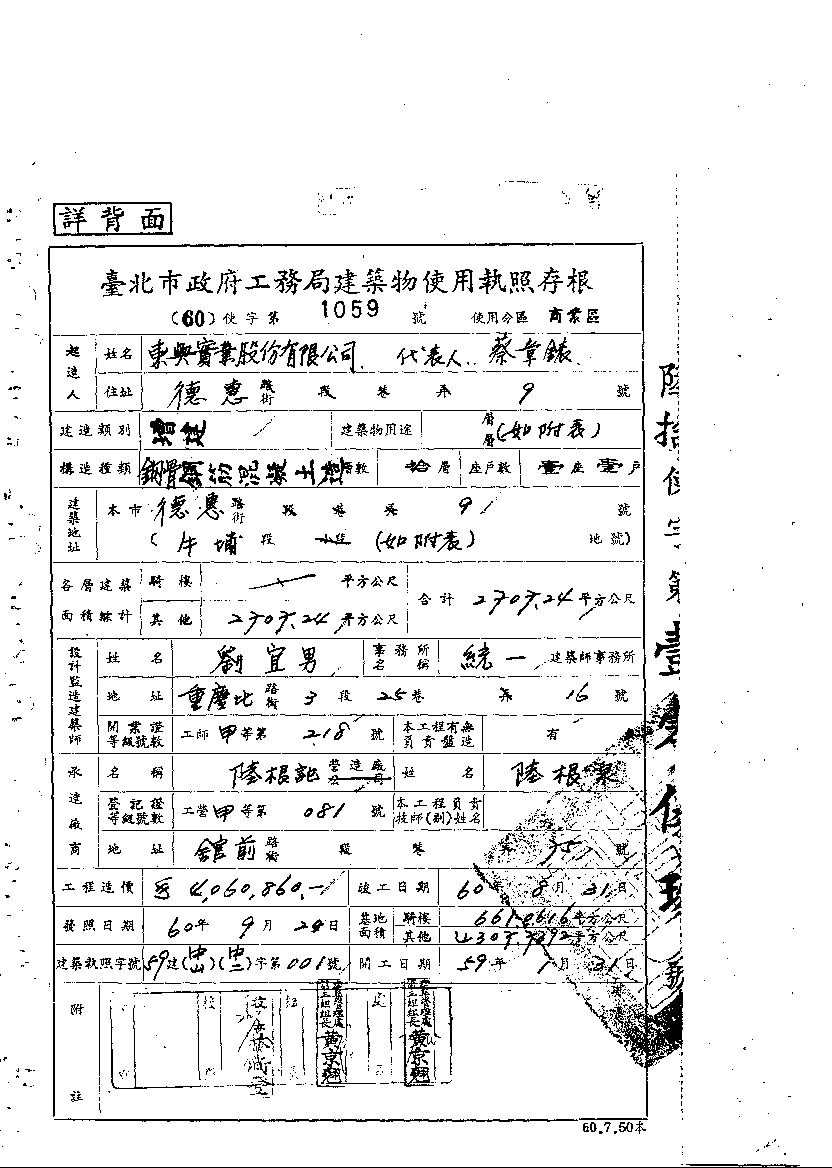 詳背面
臺北市政府工務局建築物使用執照存根
(60)使字第 1059 號 使用分區 商業區
起造人 姓名 東興實業股份有限公司 代表人 蔡章錶
住址 德惠 路街 段 巷 弄 9 號
建造類別 增建 建築物用途 層層 (如附表)
構造種類 鋼骨鋼筋混凝土造 層數 拾層 座戶數 壹座壹戶
建築地址 本市 德惠 路街 段 巷 弄 9 號
( 牛埔 段 小段 (如附表) 地號)
各層建築面積綜計 騎樓 平方公尺
其他 2707.24 平方公尺 合計 2707.24 平方公尺
設計監造建築師 姓名 劉宜男 事務所名稱 統一 建築師事務所
地址 重慶北 路街 3 段 25 巷 弄 16 號
開業證等級號數 工師甲等第 218 號 本工程有無負責監造 有
承造廠商 名稱 陸根記 營造廠公司 姓名 陸根泉
登記證等級號數 工營甲等第 081 號 本工程負責技師(副)姓名
地址 館前 路街 段 巷 弄 號
工程造價 4,060,860.- 竣工日期 60年 8月 31日
發照日期 60年 9月 24日 基地面積 騎樓 平方公尺
其他 平方公尺
建築執照字號 59建(中山)(中二)字第001號 開工日期 59年 1月 31日
附註
黃京翹
黃京翹
60.7.50本
陸拾使字第壹